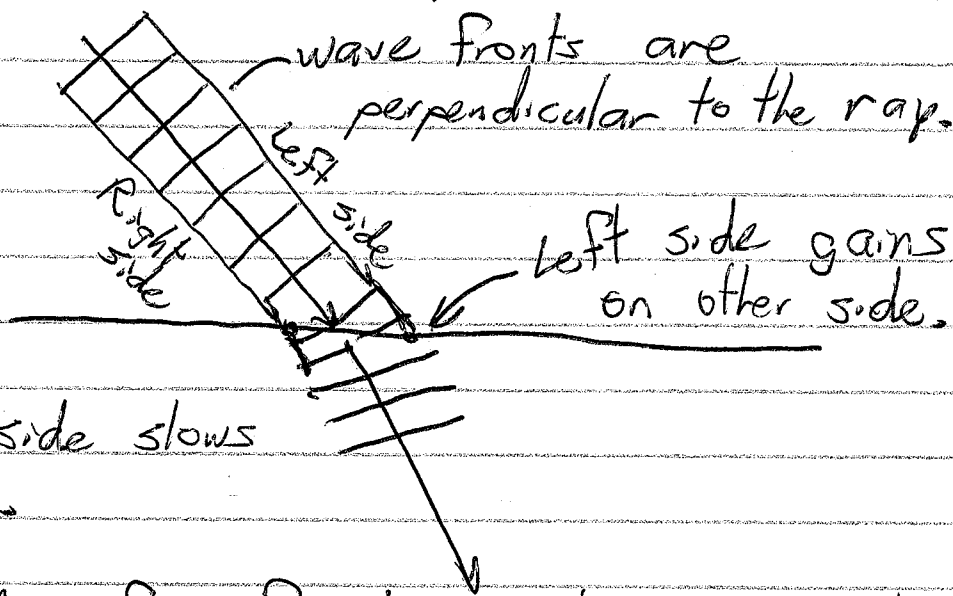 wave fronts are
perpendicular to the ray.
Left side
Right side
Left side gains
on other side.
side slows